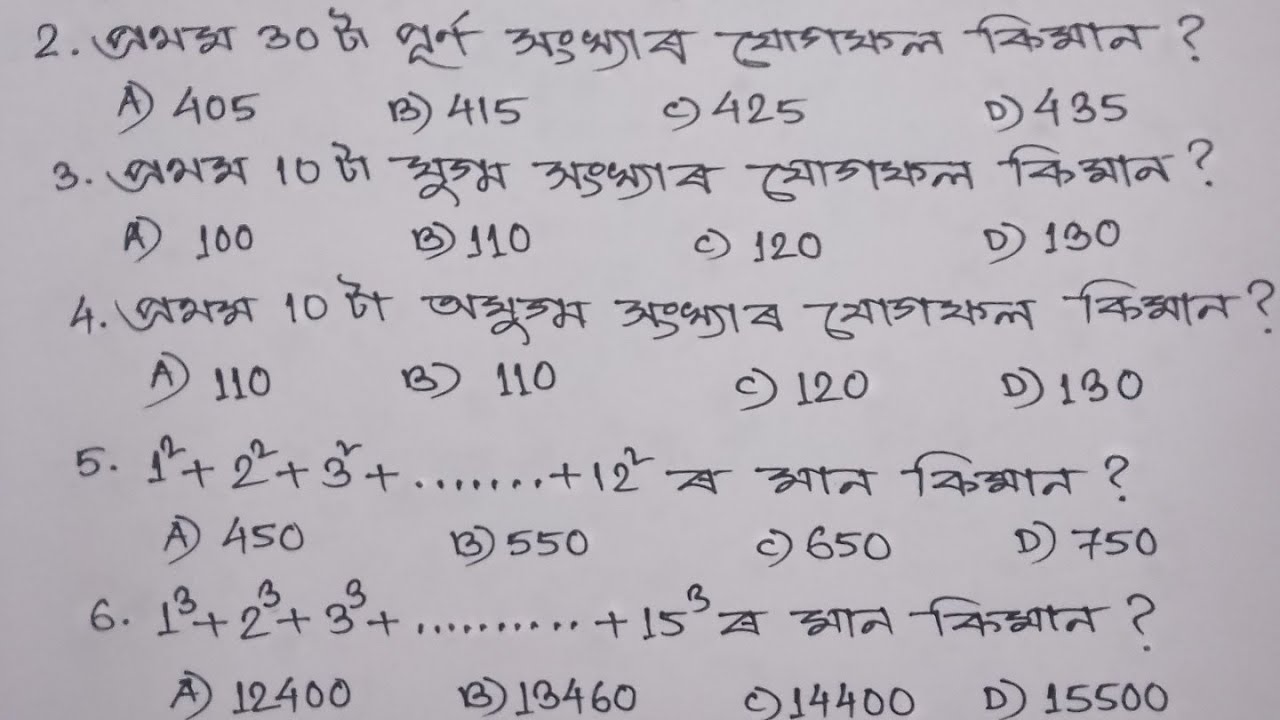 2. প্ৰথম 30 টা পূৰ্ণ সংখ্যাৰ যোগফল কিমান ?
A) 405 B) 415 C) 425 D) 435
3. প্ৰথম 10 টা যুগ্ম সংখ্যাৰ যোগফল কিমান ?
A) 100 B) 110 C) 120 D) 130
4. প্ৰথম 10 টা অযুগ্ম সংখ্যাৰ যোগফল কিমান ?
A) 110 B) 110 C) 120 D) 130
5. 1² + 2² + 3² + ........ + 12² ৰ মান কিমান ?
A) 450 B) 550 C) 650 D) 750
6. 1³ + 2³ + 3³ + .......... + 15³ ৰ মান কিমান ?
A) 12400 B) 13460 C) 14400 D) 15500